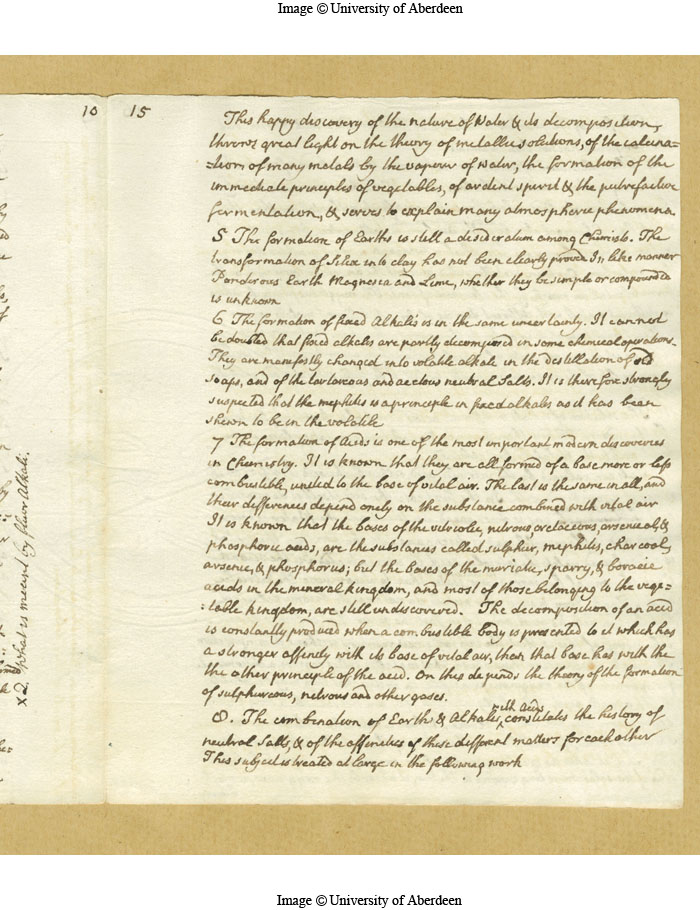 Image © University of Aberdeen
10
15
This happy discovery of the nature of Water & its decomposition,
throws great light on the theory of metallic solutions, of the calcina=
=tion, of many metals by the vapour of water, the formation of the
immediate principles of vegetables, of ardent spirit & the putrefactive
fermentation, & serves to explain many atmospheric phenomena.
5 The formation of Earths is still a desideratum among Chemists. The
transformation of Silex into clay has not been clearly proved In like manner
Ponderous Earth Magnesia and Lime, whether they be simple or compounded
is unknown
6 The formation of fixed Alkalis is in the same uncertainty. It cannot
be doubted that fixed alkalis are partly decomposed in some chemical operations.
They are manifestly changed into volatile alkali in the destillation of old
soaps, and of the tartareous and acetous neutral Salts. It is therefore strongly
suspected that the mephitis is a principle in fixed alkalis as it has been
shewn to be in the volatile
7 The formation of Acids is one of the most important modern discoveries
in Chemistry. It is known that they are all formed of a base more or less
combustible, united to the base of vital air. The last is the same in all, and
their differences depend only on the substance combined with vital air
It is known that the bases of the vitriolic, nitrous, cretaceous, arsenical, &
phosphoric acids, are the substances called sulphur, mephitis, charcoal,
arsenic, & phosphorus; but the bases of the muriatic, sparry, & boracic
acids in the mineral kingdom, and most of those belonging to the vege=
=table kingdom, are still undiscovered. The decomposition of an acid
is constantly produced when a combustible body is presented to it which has
a stronger affinity with its base of vital air, than that base has with the
the other principle of the acid. On this depends the theory of the formation
of sulphureous, nitrous and other gases.
8. The combination of Earths & Alkalis, with Acids constitutes the history of
neutral Salts, & of the affinities of these different matters for each other
This subject is treated at large in the following work
x 2. What is meant by fluor Alkali.
Image © University of Aberdeen